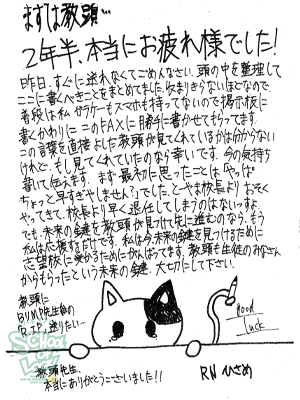 まずは教頭…
2年半、本当にお疲れ様でした!
昨日、すぐに送れなくてごめんなさい。頭の中を整理して
ここに書くべきことをまとめてました。収まりきらないほどなので。
普段は私、ガラケーもスマホも持ってないので掲示板に
書くかわりに このFAXに勝手に書かせてもらってます。
この言葉を直接よしだ教頭が見てくれているかは分からない
けれど、もし見てくれていたのなら幸いです。今の気持ち
書いて伝えます。まず最初に思ったことは「やっぱ
ちょっと早すぎやしません?」でした。とやま校長よりおそく
やってきて、校長より早く退任してしまうのはないっすよ。
でも、未来の鍵を教頭が見つけて先に進むのなら、もう
私は応援するだけです。私は今、未来の鍵を見つけるために
志望校に受かるためにがんばってます。教頭も生徒のみなさん
からもらったという未来の鍵、大切にして下さい。
教頭に
BUMP先生の
送りたい…
good
luck
School
of
Lock!
教頭先生、
本当にありがとうございました!!
RN ひさめ